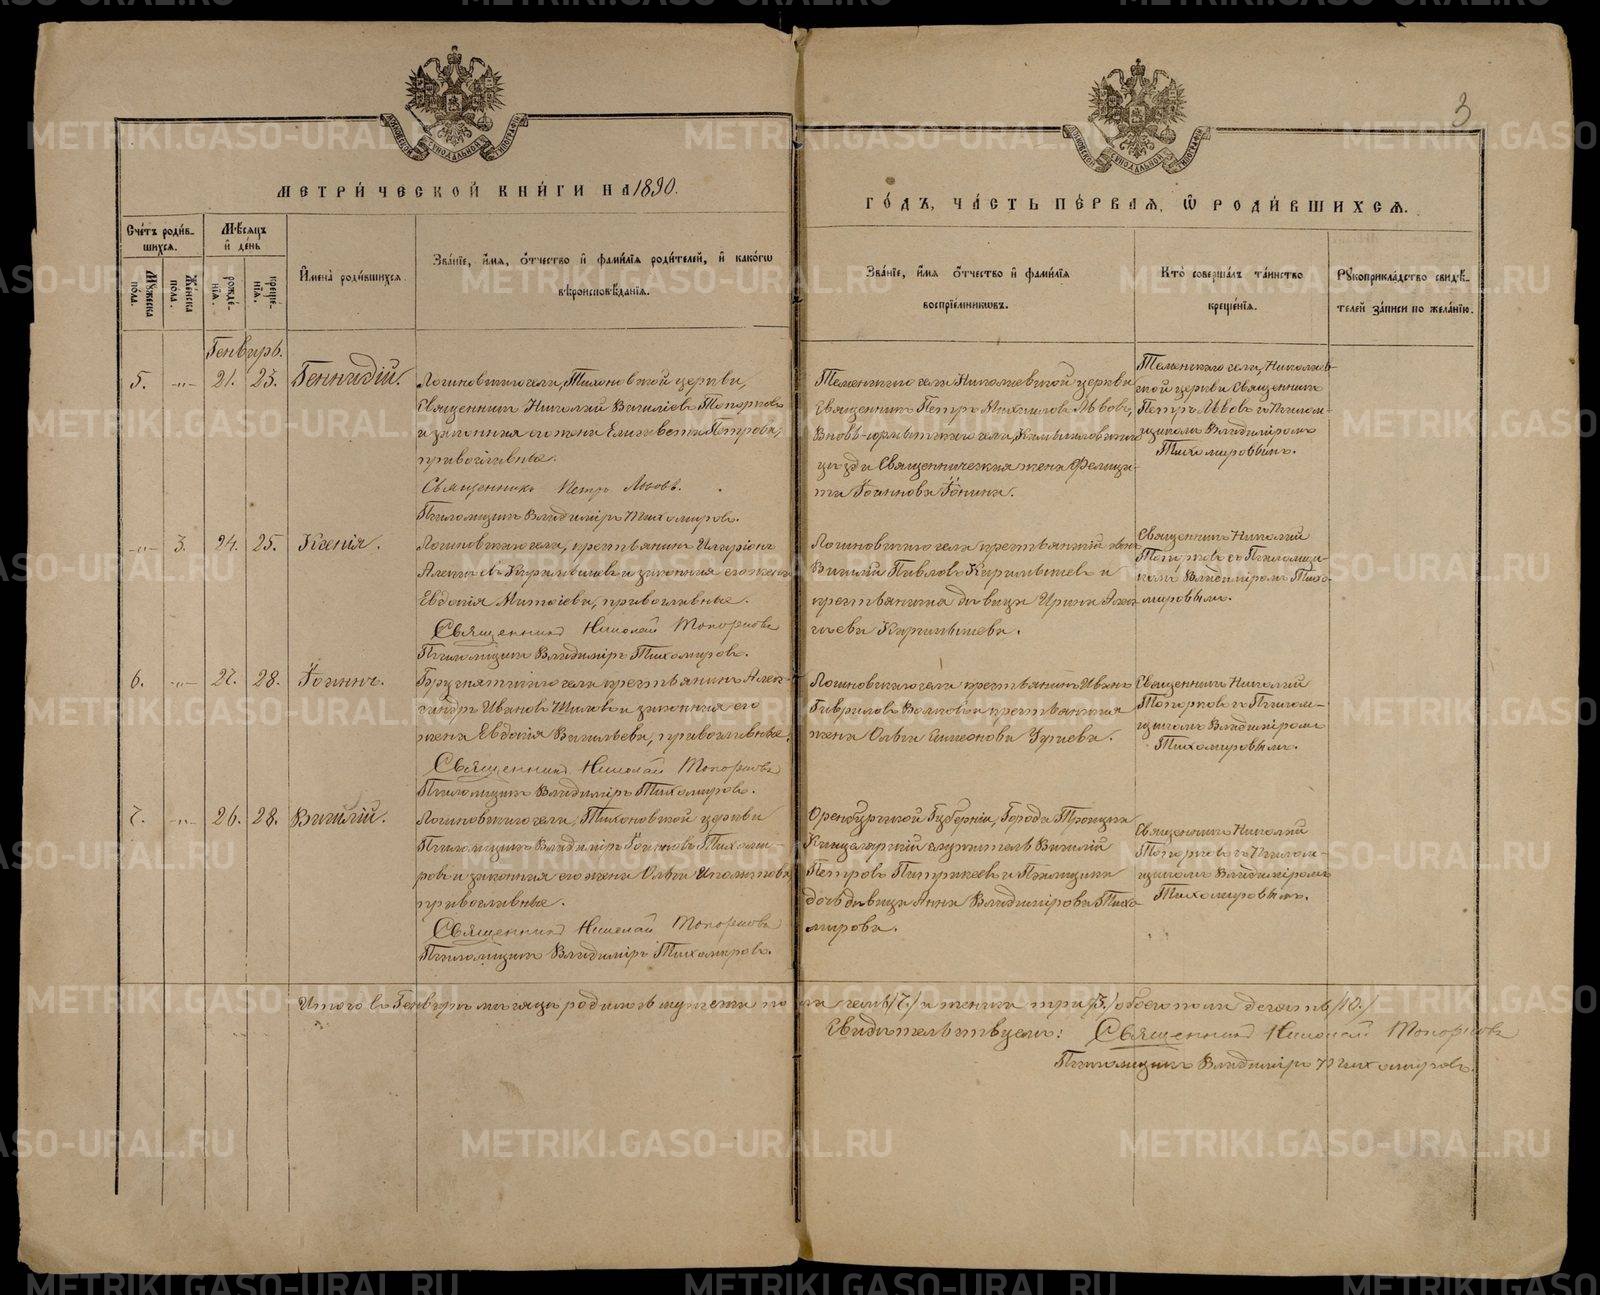 МЕТРИ́ЧЕСКОЙ КНИ́ГИ НА 1890.
ГО́ДЪ, ЧА́СТЬ ПЕ́РВАѦ, Ѿ РОДИ́ВШИХСѦ.
3
Сче́тъ роди́в-
шихся.
Мѣ́сяцъ
и де́нь
Му́жеска по́ла.
Же́нска по́ла.
рожде́-нїя.
креще́-нїя.
И҆мена̀ роди́вшихся.
Зва́нїе, и҆́мя, ѻ҆́тчество и҆ фами́лїя роди́телей, и҆ како́гѡ
вѣроисповѣ́данїя.
Зва́нїе, и҆́мя ѻ҆́тчество и҆ фами́лїя
воспрїе́мниковъ.
Кто̀ соверша́лъ та́инство
креще́нїя.
Рꙋкоприкла́дство свидѣ́-
телей за́писи по жела́нїю.
Генварь.
5. -„- 21. 23. Геннадій.
Логиновскаго села, Тихоновской церкви,
Священникъ Николай Василіевъ Топорковъ
и законная его жена Елисавета Петрова,
православные.
Священникъ Петръ Львовъ.
Псаломщикъ Владиміръ Тихомировъ.
села Николаевской церкви
Священникъ Петръ Михаиловъ Львовъ,
села, Камышловскаго
уѣзда Священническая жена Фелица-
та Іоаннова Іонина.
села, Николаев-
ской церкви Священникъ
Петръ Львовъ съ Псалом-
щикомъ Владиміромъ
Тихомировымъ.
-„- 3. 24. 25. Ксенія.
Логиновскаго села, крестьянинъ Иларіонъ
и законная его жена
Евдокія Матѳіева, православные.
Священникъ Николай Топорковъ
Псаломщикъ Владиміръ Тихомировъ.
Логиновскаго села крестьянскій сынъ
Василій Павловъ и
крестьянина дѣвица Ирина Алек-
сѣева
Священникъ Николай
Топорковъ съ Псаломщи-
комъ Владиміромъ Тихо-
мировымъ.
6. -„- 27. 28. Іоаннъ.
села крестьянинъ Алек-
сандръ Ивановъ и законная его
жена Евдокія Васильева, православные.
Священникъ Николай Топорковъ
Псаломщикъ Владиміръ Тихомировъ.
Логиновскаго села крестьянинъ Иванъ
Гавриловъ Волковъ и крестьянская
жена Ольга Симеонова
Священникъ Николай
Топорковъ съ Псалом-
щикомъ Владиміромъ
Тихомировымъ.
7. -„- 26. 28. Василій.
Логиновскаго села, Тихоновской церкви
Псаломщикъ Владиміръ Іоанновъ Тихоми-
ровъ и законная его жена Ольга Ипполитова
православные.
Священникъ Николай Топорковъ
Псаломщикъ Владиміръ Тихомировъ.
Оренбургской Губерніи, Города Троицка
Канцелярскій служитель Василій
Петровъ и Псаломщика
дочь дѣвица Анна Владимірова Тихо-
мирова.
Священникъ Николай
Топорковъ съ Псалом-
щикомъ Владиміромъ
Тихомировымъ.
Итого въ Генварѣ мѣсяцѣ родилось мужеска пола семь /7./ и женска три /3./ обоего пола десять /10./
Свидѣтельствуемъ: Священникъ Николай Топорковъ
Псаломщикъ Владиміръ Тихомировъ.
METRIKI.GASO-URAL.RU